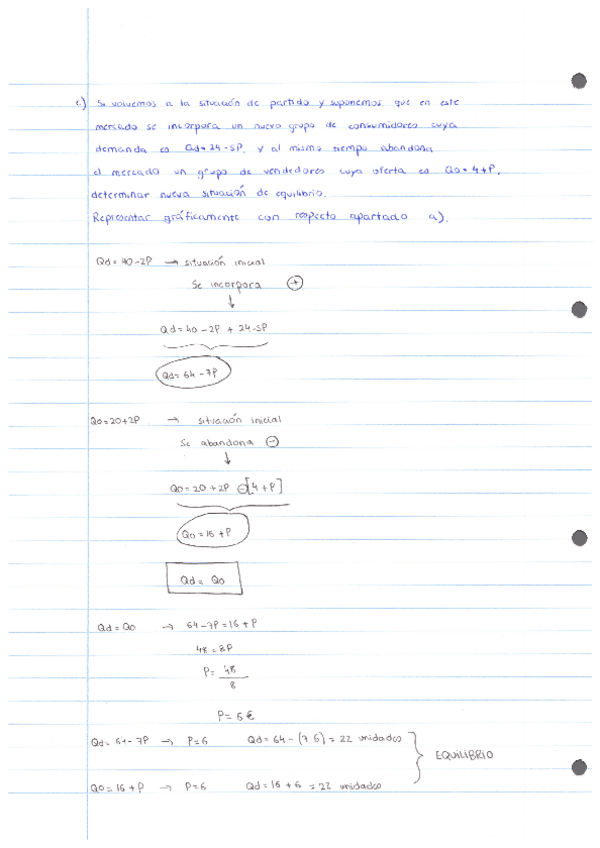 c) Si volvemos a la situación de partida y suponemos que en este
mercado se incorpora un nuevo grupo de consumidores cuya
demanda es Qd=24-5P, y al mismo tiempo abandona
el mercado un grupo de vendedores cuya oferta es Qo=4+P,
determinar nueva situación de equilibrio.
Representar gráficamente con respecto apartado a).
Qd=40-2P → situación inicial
Se incorpora +
↓
Qd=40-2P + 24-5P
Qd=64-7P
Qo=20+2P → situación inicial
Se abandona -
↓
Qo=20+2P -[4+P]
Qo=16+P
Qd = Qo
Qd=Qo → 64-7P=16+P
48=8P
P= 48/8
P=6€
Qd=64-7P → P=6 Qd=64-(7·6)=22 unidades
EQUILIBRIO
Qo=16+P → P=6 Qd=16+6=22 unidades